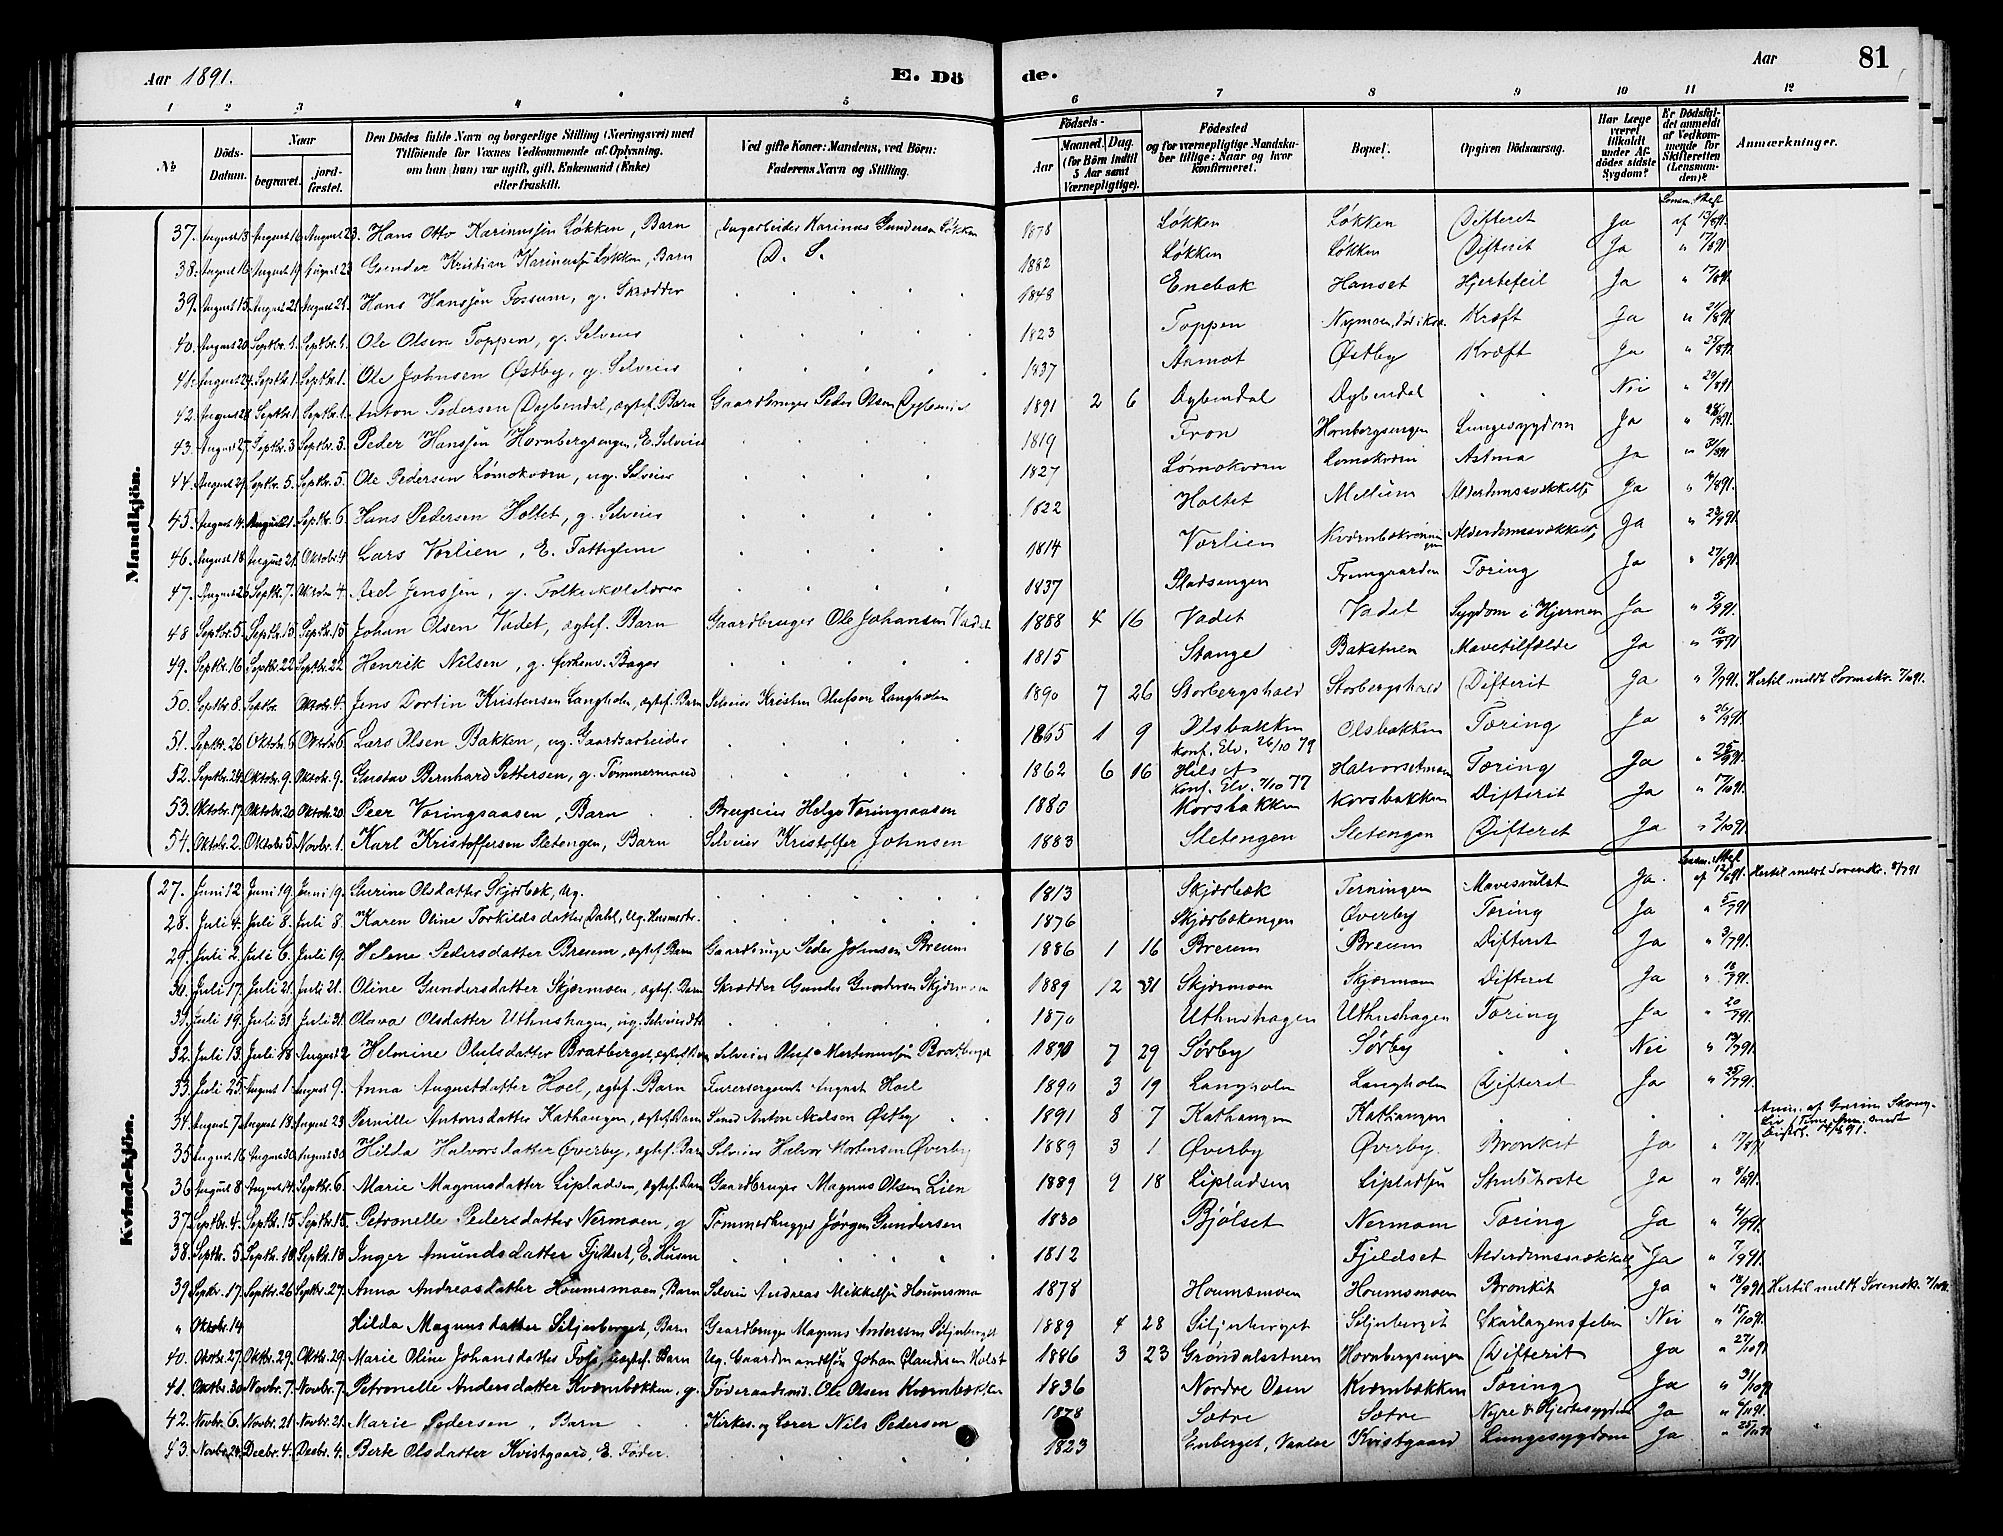 Aar 1891. E. Dö de. Aar 81
1 2 3 4 5 6 7 8 9 10 11 12
№ Döds-Datum. Naar begravet. jordfæstet. Den Dödes fulde Navn og borgerlige Stilling (Næringsvei) med Tilföiende for Voxnes Vedkommende af Oplysning, om han (hun) var ugift, gift, Enkemand (Enke) eller fraskilt. Ved gifte Koner: Mandens, ved Börn: Faderens Navn og Stilling. Födsels- Aar Maaned. Dag. (for Börn indtil 5 Aar samt Værnepligtige). Födested og for værnepligtige Mandskaber tillige: Naar og hvor konfirmeret. Bopæl. Opgiven Dödsaarsag. Har Læge været tilkaldt under Afdödes sidste Sygdom? Er Dödsfaldet anmeldt af Vedkommende for Skifteretten (Lensmanden)? Anmærkninger.
Mandkjön.
37. August 13 August 16 August 23. Hans Otto Karinussen Løkken, Barn Dagarbeider Karinus Gundersen Løkken 1878 Løkken Løkken Difterit Ja af 13/891.
38. August 16 August 19 August 23 Gunder Kristian Karinussen Løkken, Barn D. S. 1882 Løkken Løkken Difterit Ja " 17/891.
39. August 15 August 21 August 21. Hans Hansen Fossum, g. Skrædder 1848 Enebak Hanset Hjertefeil Ja " 17/891.
40. August 20 Septbr. 1. Septbr. 1. Ole Olsen Toppen, g. Selveier 1823 Toppen Nymoen Kræft Ja " 21/891.
41. August 24. Septbr. 1. Septbr. 1. Ole Johnsen Østby, g. Selveier 1837 Aamot Østby Kræft Ja " 25/891.
42. August 28 Septbr. 1 Septbr. 1. Anton Pedersen Dybendal, ægtef. Barn Gaardbruger Peder Olsen 1891 2 6 Dybendal Dybendal Nei " 29/891
43. August 27. Septbr. 3 Septbr. 3. Peder Hanssen Hornbergsengen, E. Selveier 1819 Fron Hornbergsengen Lungesygdom Ja " 28/891
44. August 31 Septbr. 5. Septbr. 5. Ole Pedersen Lømokværn, ug. Selveier 1827 Lømokværn Lømokværn Astma Ja " 31/891
45. August 14. August 21. Septbr. 6. Hans Pedersen Holtet, g. Selveier 1822 Holtet Mellum Alderdomssvækkelse Ja " 14/891.
46. August 18 August 21. Oktobr. 4. Lars Vorlien, E. Fattiglem 1814 Vorlien Alderdomssvækkelse Ja " 23/991.
47. August 26 Septbr. 7. Oktober 4. Axel Jenssen, g. Folkeskolelærer 1837 Pladsengen Fremgaarden Tæring Ja " 27/891.
48 Septbr. 5. Septbr. 15 Septbr. 15 Johan Olsen Vadet, ægtef. Barn Gaardbruger Ole Johansen Vadet 1888 4 16 Vadet Vadet Sygdom i Hjernen Ja " 5/991.
49. Septbr. 16 Septbr. 22 Septbr. 22 Henrik Nilsen, g. forhenv. Bager 1815 Stange Bakstuen Mavetilfælde Ja " 16/991.
50. Septbr. 8. Septbr. Oktobr. 4. Jens Dortin Kristensen Langholen, ægtef. Barn Selveier Kristen Olufsen Langholen 1890 7 26 Storbergshold Storbergshold Difterit Ja " 9/991. Hertil meldt Sorenskr. 7/1091.
51. Septbr. 26 Oktobr. 6. Oktobr. 6. Lars Olsen Bakken, ug. Gaardsarbeider 1865 1 9 Olsbakken Konf. Elv. 26/10 79 Olsbakken Tæring Ja " 26/991.
52. Septbr. 24. Oktobr. 9. Oktobr. 9. Gustav Bernhard Pettersen, g. Tømmermand 1862 6 16 Konf. Elv. 7/10 77 Halvorsetmoen Tæring Ja " 25/991
53. Oktobr. 17. Oktobr. 20 Oktobr. 20. Peer Voringsaasen, Barn Brugseier Helge Voringsaasen 1880 Korsbakken Korsbakken Difterit Ja " 17/1091.
54. Oktobr. 2. Oktobr. 5 Novbr. 1. Karl Kristoffersen Sletengen, Barn Selveier Kristoffer Johnsen 1883 Sletengen Sletengen Difteret Ja " 2/1091.
Kvindekjön.
27. Juni 12 Juni 19 Juni 19. Gurine Olsdatter Skjærbæk, Ug. 1813 Skjærbæk Terningen Mavesvulst Ja. af 12/691. Hertil meldt Sorenskr. 8/791
28. Juli 4. Juli 8. Juli 8. Karen Oline Torkildsdatter Dahl, Ug. 1876 Skjærbækengen Øverby Tæring Ja " 5/791
29. Juli 2. Juli 6. Juli 19. Helene Pedersdatter Breum, ægtef. Barn Gaardbruger Peder Johnsen Breum 1886 1 16 Breum Breum Difteret Ja " 3/791.
30. Juli 17. Juli 21. Juli 21. Oline Gundersdatter Skjærmoen, ægtef. Barn Skrædder Gunder Gundersen Skjærmoen 1889 12 31 Skjærmoen Skjærmoen Difteret Ja " 18/791.
31. Juli 19. Juli 31 Juli 31. Olava Olsdatter Uthushagen, ug. Selveierdtr 1870 Uthushagen Uthushagen Tæring Ja " 20/791.
32. Juli 13. Juli 18 August 2 Helmine Olufsdatter Bratberget, ægtef. Barn Selveier Oluf Mortenussen Bratberget 1890 7 29 Sørby Sørby Nei " 13/791.
33. Juli 25 August 1 August 9. Anna Augustdatter Hoel, ægtef. Barn Furersergeant August Hoel 1890 3 19 Langholen Langholen Difterit Ja " 25/791.
34. August 7. August 18. August 23 Pernille Antonsdatter Kathaugen, ægtef. Barn Smed Anton Axelsen Østby 1891 8 7 Kathaugen Kathaugen
35 August 16 August 30 August 30 Hilda Halvorsdatter Øverby, ægtef. Barn Selveier Halvor Mortensen Øverby 1889 3 1 Øverby Øverby. Bronkit Ja " 17/891
36 August 8. August 14. Septbr. 6. Marie Magnusdatter Lipladsen, ægtef. Barn Gaardbruger Magnus Olsen Lien 1889 9 18 Lipladsen Lipladsen Strubehoste Ja " 8/891.
37. Septbr. 4. Septbr. 15. Septbr. 15. Petronelle Pedersdatter Nermoen, g Tømmerhugger Jørgen Gundersen 1830 Bjølset Nermoen Tæring Ja " 4/991.
38. Septbr. 5 Septbr. 18 Septbr. 18 Inger Amundsdatter Fjeldset, E. 1812 Fjeldset Alderdomssvækkelse Ja " 7/991.
39. Septbr. 17. Septbr. 26 Septbr. 27. Anna Andreasdatter Houmsmoen, Barn Selveier Andreas Mikkelsen Houmsmo 1878 Houmsmoen Houmsmoen Bronkit Ja " 18/991. Hertil meldt Sorenskr. 7/1091.
" Oktobr. 14 Hilda Magnusdatter Siljuberget, Barn Gaardbruger Magnus Anderssen Siljuberget 1889 4 28 Siljuberget Siljuberget Skarlagensfeber Nei " 15/1091.
40. Oktobr. 27. Oktbr. 29. Oktbr. 29. Marie Oline Johansdatter Foss, uægtef. Barn Ug. Gaardmandssøn Johan Claudisen Holst 1886 3 23 Grøndalsstuen Hornbergsengen Difterit Ja " 27/1091
41. Oktbr. 30 Novbr. 7. Novbr. 7. Petronelle Andersdatter Kværnbækken, g. Føderaadsmd. Ole Olsen Kværnbækken 1836 Nordre Oset Kværnbækken Tæring Ja " 31/1091
42. Novbr. 6. Novbr. 21. Novbr. 21. Marie Pedersen, Barn Kirkes. og Lærer Nils Pedersen 1878 Sætre Sætre Nyre & Hjertesygdom Ja
43. Novbr. 24. Decbr. 4. Decbr. 4. Berte Olsdatter Kvistgaard, E. Føder. 1823 Enberget, Vaaler Kvistgaard Lungesygdom Ja " 25/1191